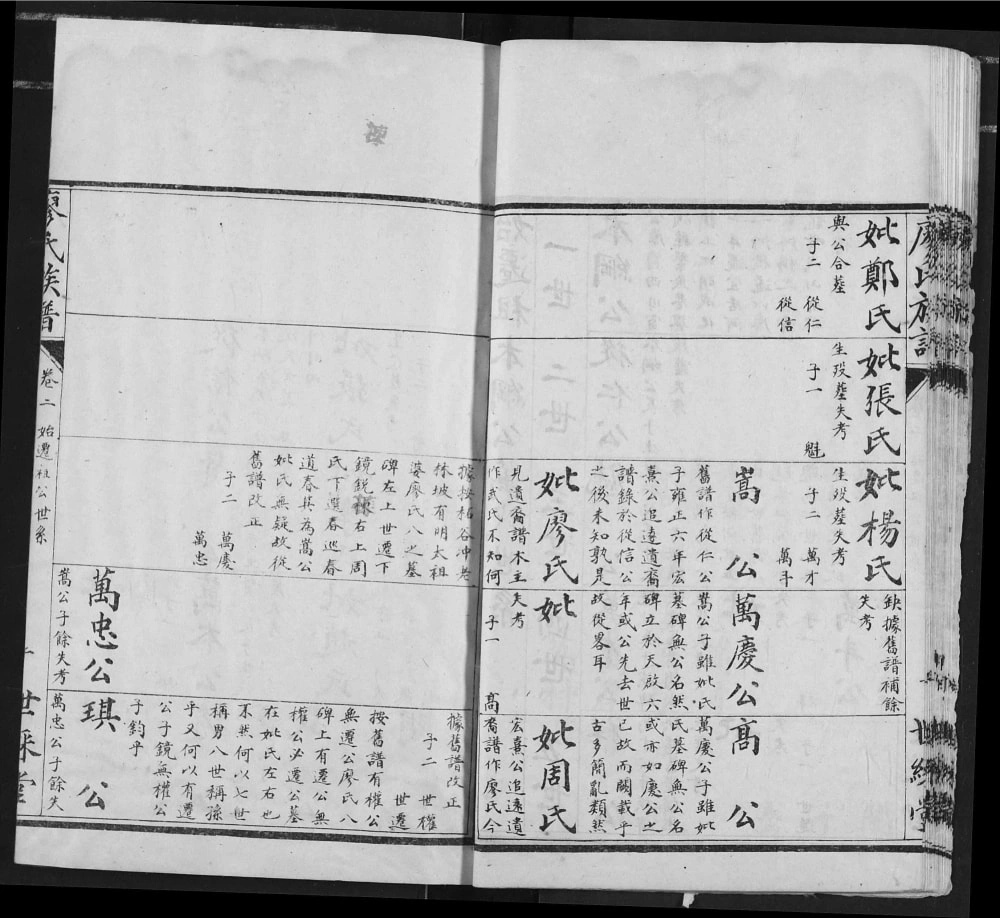 廖氏族譜
世綵堂
妣鄭氏
與公合墓
子二 從仁
從信
妣張氏
生歿墓失考
子一 魁
妣楊氏
生歿墓失考
子二 萬才
萬手
缺據舊譜補餘
失考
嵩公
舊譜作從仁公
子雍正六年宏
熹公追遠遺裔
譜錄於從信公
之後未知孰是
妣廖氏
見遺裔譜木主
作武氏不知何
據按粘谷冲老
林坡有明太祖
婆廖氏八之墓
碑左上世遷下
鏡銳右上周
氏下遷春巡春
道春其為嵩公
妣氏無疑故從
舊譜改正
子二 萬慶
萬忠
萬慶公
嵩公子雖妣氏
墓碑無公名然
碑立於天啟六
年或公先去世
故從畧耳
妣
失考
子一 高
萬忠公
嵩公子餘失考
高公
萬慶公子雖妣
氏墓碑無公名
或亦如慶公之
已故而闕載乎
古多簡亂類然
妣周氏
宏熹公追遠遺
裔譜作廖氏今
據舊譜改正
子二 世權
世遷
按舊譜有權公
無遷公廖氏八
碑上有遷公無
權公必遷公墓
在妣氏左右也
不然何以七世
稱男八世稱孫
乎又何以有遷
公子鏡無權公
子鈞乎
琪公
萬忠公子餘失
廖氏族譜
卷二 始遷祖公世系
世綵堂